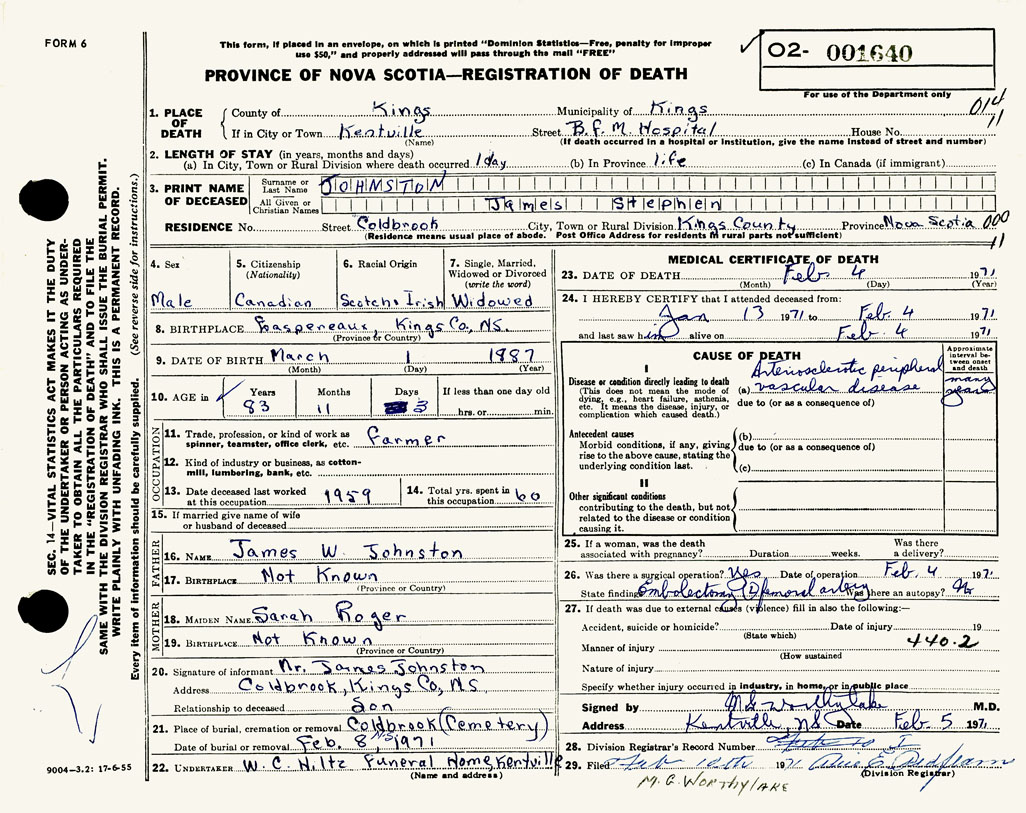 FORM 6
This form, if placed in an envelope, on which is printed "Dominion Statistics—Free, penalty for improper
use $50," and properly addressed will pass through the mail "FREE"
PROVINCE OF NOVA SCOTIA—REGISTRATION OF DEATH
02- 001640
For use of the Department only
014
11
1. PLACE OF DEATH
County of Kings Municipality of Kings
If in City or Town Kentville Street B.F.M. Hospital House No.
(Name) (If death occurred in a hospital or institution, give the name instead of street and number)
2. LENGTH OF STAY (in years, months and days)
(a) In City, Town or Rural Division where death occurred 1 day (b) In Province life (c) In Canada (if immigrant)
3. PRINT NAME OF DECEASED
Surname or Last Name JOHNSTON
All Given or Christian Names James Stephen
RESIDENCE No. Street Coldbrook City, Town or Rural Division Kings County Province Nova Scotia 000
(Residence means usual place of abode. Post Office Address for residents in rural parts not sufficient)
11
4. Sex
Male
5. Citizenship
(Nationality)
Canadian
6. Racial Origin
Scotch & Irish
7. Single, Married,
Widowed or Divorced
(write the word)
Widowed
8. BIRTHPLACE Gaspereaux, Kings Co, NS.
(Province or Country)
9. DATE OF BIRTH March 1 1887
(Month) (Day) (Year)
10. AGE in Years Months Days If less than one day old
83 11 3 hrs. or min.
OCCUPATION
11. Trade, profession, or kind of work as
spinner, teamster, office clerk, etc. Farmer
12. Kind of industry or business, as cotton-
mill, lumbering, bank, etc.
13. Date deceased last worked
at this occupation 1959
14. Total yrs. spent in
this occupation 60
15. If married give name of wife
or husband of deceased
FATHER
16. NAME James W. Johnston
17. BIRTHPLACE Not Known
(Province or Country)
MOTHER
18. MAIDEN NAME Sarah Roger
19. BIRTHPLACE Not Known
(Province or Country)
20. Signature of informant Mr. James Johnston
Address Coldbrook, Kings Co, NS
Relationship to deceased Son
21. Place of burial, cremation or removal Coldbrook (Cemetery)
NS
Date of burial or removal Feb. 8, 1971
22. UNDERTAKER W. C. Hiltz Funeral Home, Kentville
(Name and address)
MEDICAL CERTIFICATE OF DEATH
23. DATE OF DEATH Feb. 4 1971
(Month) (Day) (Year)
24. I HEREBY CERTIFY that I attended deceased from:
Jan 13 1971 to Feb. 4 1971
and last saw him alive on Feb. 4 1971
CAUSE OF DEATH
Approximate interval between onset and death
I
Disease or condition directly leading to death
(This does not mean the mode of
dying, e.g., heart failure, asthenia,
etc. It means the disease, injury, or
complication which caused death.)
Arteriosclerotic peripheral
(a) vascular disease
many years
due to (or as a consequence of)
Antecedent causes
Morbid conditions, if any, giving
rise to the above cause, stating the
underlying condition last.
(b)
due to (or as a consequence of)
(c)
II
Other significant conditions
contributing to the death, but not
related to the disease or condition
causing it.
25. If a woman, was the death
associated with pregnancy? Duration weeks. Was there
a delivery?
26. Was there a surgical operation? Yes Date of operation Feb. 4 1971
State findings Embolectomy (L) femoral artery Was there an autopsy? No
27. If death was due to external causes (violence) fill in also the following:—
Accident, suicide or homicide? Date of injury 19
(State which)
Manner of injury 440.2
(How sustained
Nature of injury
Specify whether injury occurred in industry, in home, or in public place
Signed by M G Worthylake M.D.
Address Kentville, NS Date Feb. 5 1971
28. Division Registrar's Record Number
29. Filed Feb 10th 1971
(Division Registrar)
M. G. WORTHYLAKE
SEC. 14—VITAL STATISTICS ACT MAKES IT THE DUTY
OF THE UNDERTAKER OR PERSON ACTING AS UNDER-
TAKER TO OBTAIN ALL THE PARTICULARS REQUIRED
IN THE "REGISTRATION OF DEATH" AND TO FILE THE
SAME WITH THE DIVISION REGISTRAR WHO SHALL ISSUE THE BURIAL PERMIT.
WRITE PLAINLY WITH UNFADING INK. THIS IS A PERMANENT RECORD.
Every item of information should be carefully supplied. (See reverse side for instructions.)
9004-3.2: 17-6-55